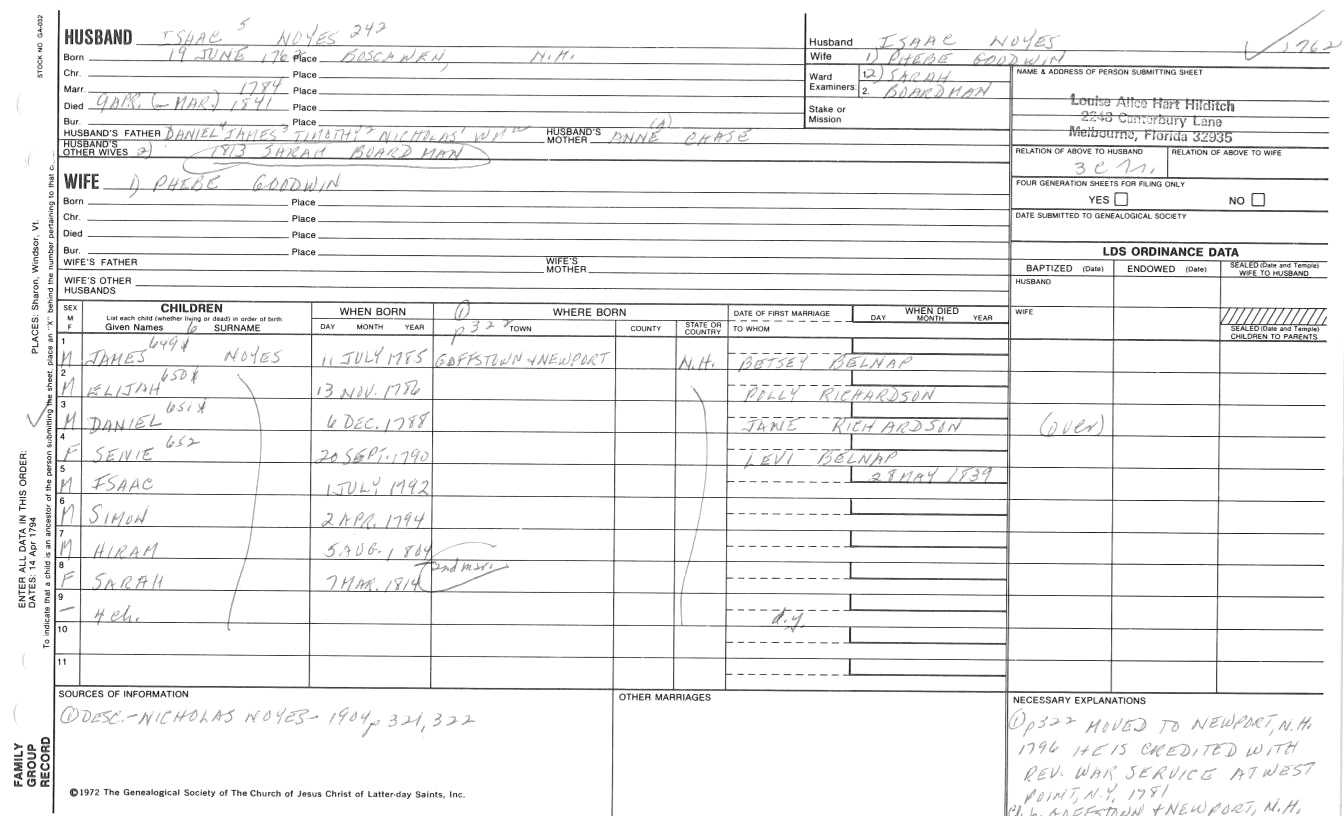 STOCK NO. GA-032
HUSBAND ISAAC 5 NOYES 242
Born 19 JUNE 1762 Place BOSCAWEN, N.H.
Chr. Place
Marr. 1784 Place
Died 9 APR. (- MAR.) 1841 Place
Bur. Place
HUSBAND'S FATHER DANIEL 4 JAMES 3 TIMOTHY 2 NICHOLAS 1 HUSBAND'S MOTHER ANNE (A) CHASE
HUSBAND'S OTHER WIVES 2) 1813 SARAH BOARDMAN
Husband ISAAC NOYES 1762
Wife 1) PHEBE GOODWIN
Ward Examiners 1. 2) SARAH
2. BOARDMAN
Stake or Mission
NAME & ADDRESS OF PERSON SUBMITTING SHEET
Louise Alice Hart Hilditch
2248 Canterbury Lane
Melbourne, Florida 32935
RELATION OF ABOVE TO HUSBAND RELATION OF ABOVE TO WIFE
3 C
FOUR GENERATION SHEETS FOR FILING ONLY
YES NO
DATE SUBMITTED TO GENEALOGICAL SOCIETY
WIFE 1) PHEBE GOODWIN
Born Place
Chr. Place
Died Place
Bur. Place
WIFE'S FATHER WIFE'S MOTHER
WIFE'S OTHER HUSBANDS
LDS ORDINANCE DATA
BAPTIZED (Date) ENDOWED (Date) SEALED (Date and Temple) WIFE TO HUSBAND
HUSBAND
WIFE
SEALED (Date and Temple) CHILDREN TO PARENTS
SEX M F CHILDREN WHEN BORN ① WHERE BORN DATE OF FIRST MARRIAGE WHEN DIED
List each child (whether living or dead) in order of birth
Given Names 6 SURNAME DAY MONTH YEAR p 322 TOWN COUNTY STATE OR COUNTRY TO WHOM DAY MONTH YEAR
1 M JAMES 649 NOYES 11 JULY 1785 GOFFSTOWN + NEWPORT N.H. BETSEY BELNAP
2 M ELIJAH 650 13 NOV. 1786 POLLY RICHARDSON
3 M DANIEL 651 6 DEC. 1788 JANE RICHARDSON (over)
4 F SENIE 652 20 SEPT. 1790 LEVI BELNAP
5 M ISAAC 1 JULY 1792 28 MAY 1839
6 M SIMON 2 APR. 1794
7 M HIRAM 5 AUG. 1804
8 F SARAH 7 MAR. 1814 2nd marr.
9 - 4 ch. d.y.
10
11
SOURCES OF INFORMATION
① DESC.- NICHOLAS NOYES- 1904 p 321, 322
OTHER MARRIAGES
NECESSARY EXPLANATIONS
① p322 MOVED TO NEWPORT, N.H.
1796 HE IS CREDITED WITH
REV. WAR SERVICE AT WEST
POINT, N.Y. 1781
GOFFSTOWN + NEWPORT, N.H.
©1972 The Genealogical Society of The Church of Jesus Christ of Latter-day Saints, Inc.
FAMILY GROUP RECORD
ENTER ALL DATA IN THIS ORDER:
DATES: 14 Apr 1794
PLACES: Sharon, Windsor, Vt.
To indicate that a child is an ancestor of the person submitting the sheet, place an "X" behind the number pertaining to that c